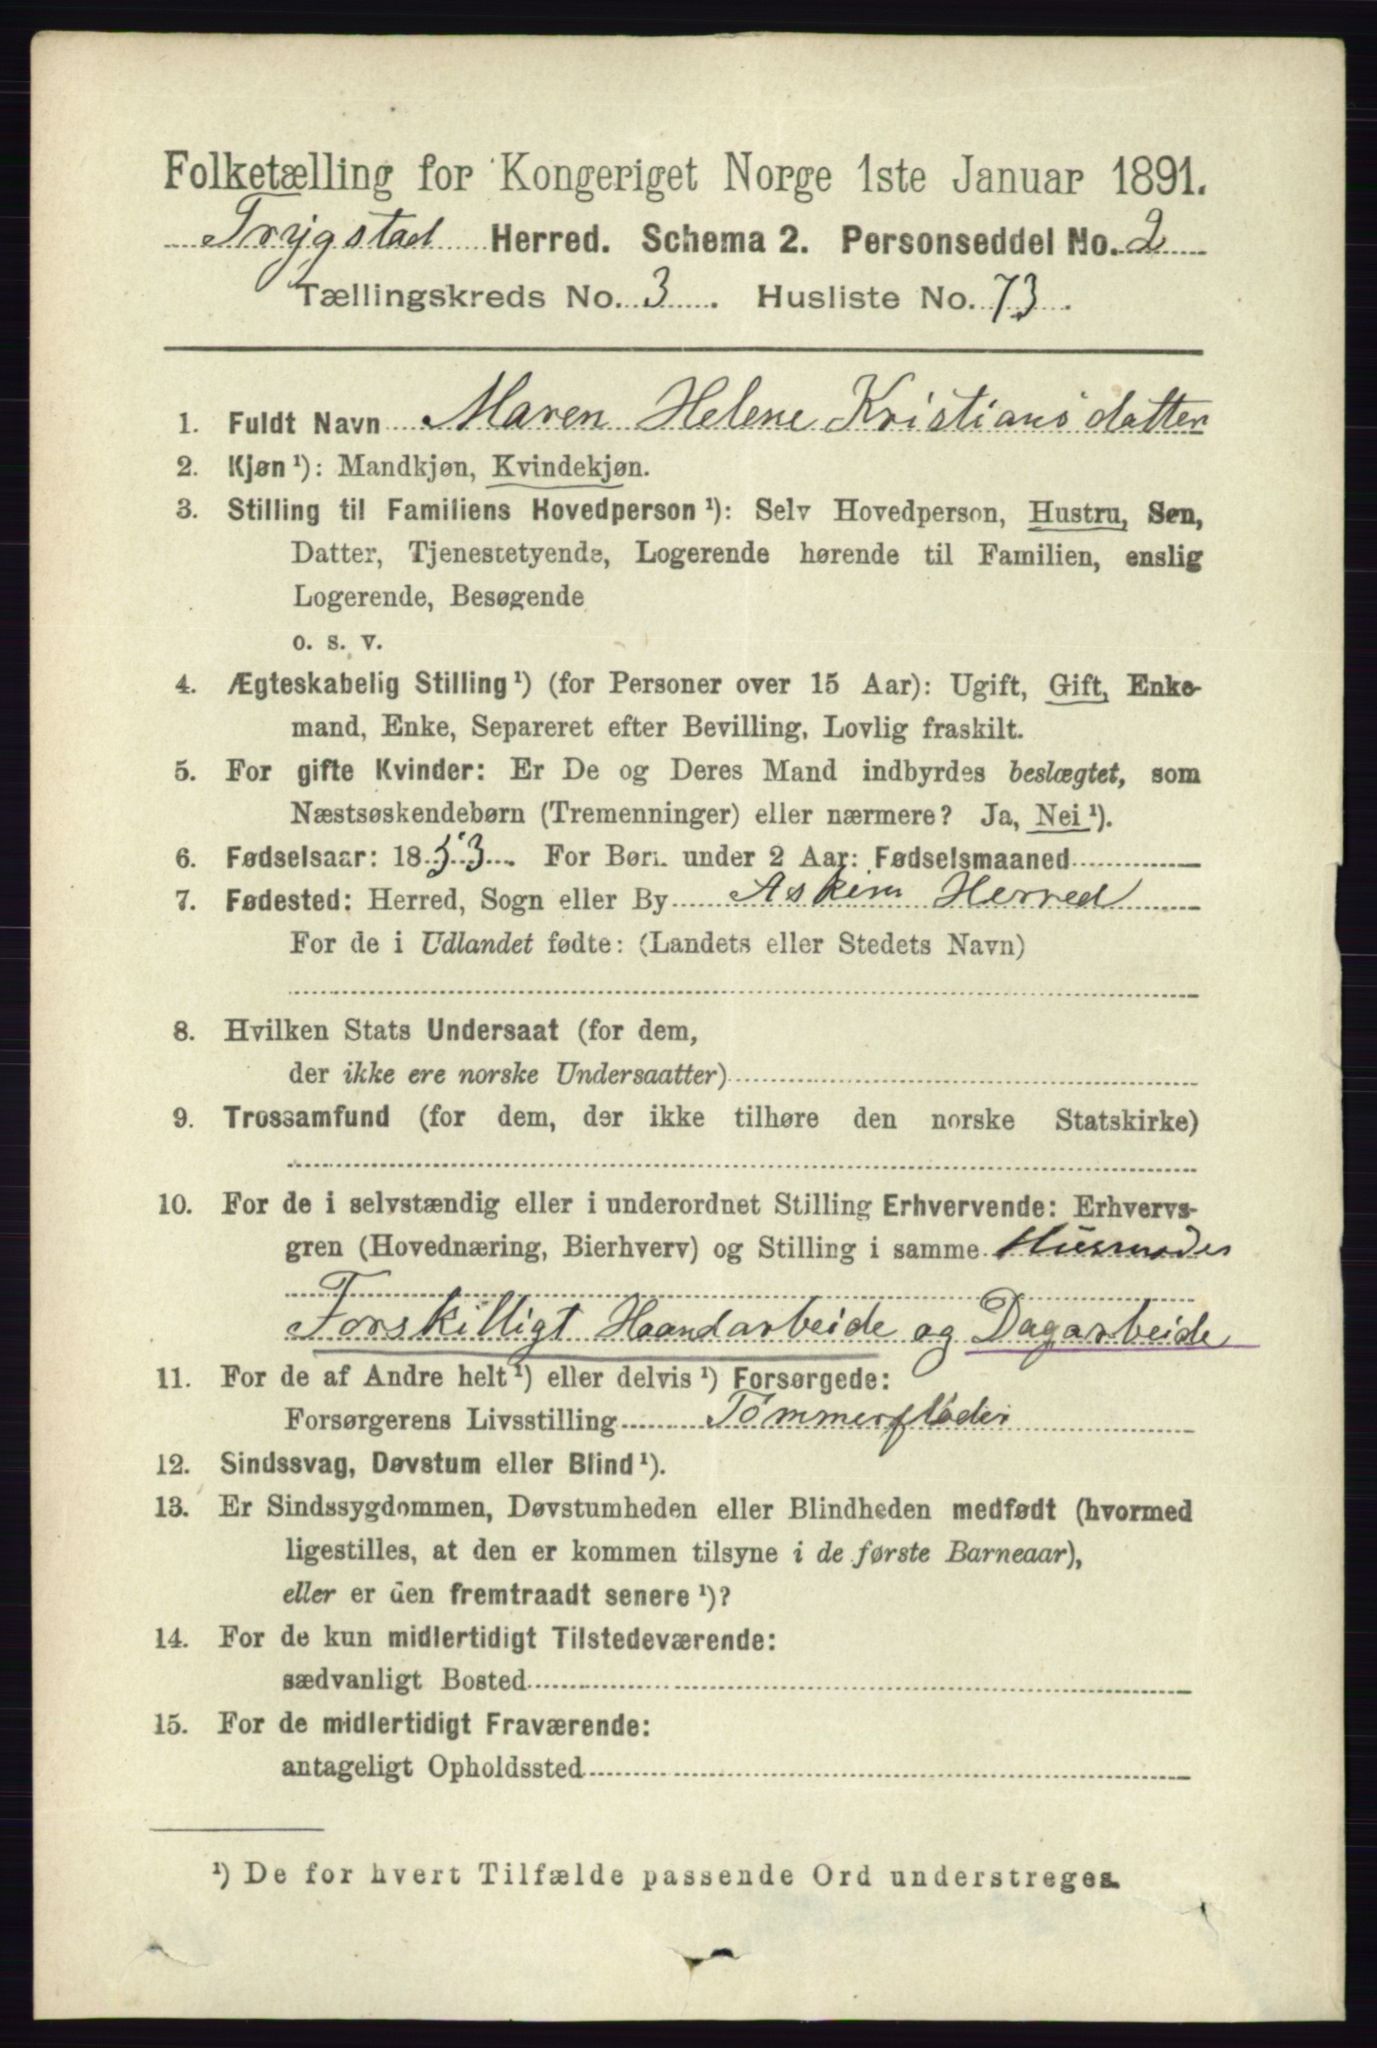 Folketælling for Kongeriget Norge 1ste Januar 1891.
Trygstad Herred. Schema 2. Personseddel No. 2
Tællingskreds No. 3. Husliste No. 73.
1. Fuldt Navn Maren Helene Kristiansdatter
2. Kjøn¹): Mandkjøn, Kvindekjøn.
3. Stilling til Familiens Hovedperson¹): Selv Hovedperson, Hustru, Søn,
Datter, Tjenestetyende, Logerende hørende til Familien, enslig
Logerende, Besøgende
o. s. v.
4. Ægteskabelig Stilling¹) (for Personer over 15 Aar): Ugift, Gift, Enke-
mand, Enke, Separeret efter Bevilling, Lovlig fraskilt.
5. For gifte Kvinder: Er De og Deres Mand indbyrdes beslægtet, som
Næstsøskendebørn (Tremenninger) eller nærmere? Ja, Nei¹).
6. Fødselsaar: 1853. For Børn under 2 Aar: Fødselsmaaned
7. Fødested: Herred, Sogn eller By Askim Herred
For de i Udlandet fødte: (Landets eller Stedets Navn)
8. Hvilken Stats Undersaat (for dem,
der ikke ere norske Undersaatter)
9. Trossamfund (for dem, der ikke tilhøre den norske Statskirke)
10. For de i selvstændig eller i underordnet Stilling Erhvervende: Erhvervs-
gren (Hovednæring, Bierhverv) og Stilling i samme Husmoder
Forskilligt Haandarbeide og Dagarbeide
11. For de af Andre helt¹) eller delvis¹) Forsørgede:
Forsørgerens Livsstilling Tømmerfløder
12. Sindssvag, Døvstum eller Blind¹).
13. Er Sindssygdommen, Døvstumheden eller Blindheden medfødt (hvormed
ligestilles, at den er kommen tilsyne i de første Barneaar),
eller er den fremtraadt senere¹)?
14. For de kun midlertidigt Tilstedeværende:
sædvanligt Bosted
15. For de midlertidigt Fraværende:
antageligt Opholdssted
¹) De for hvert Tilfælde passende Ord understreges.